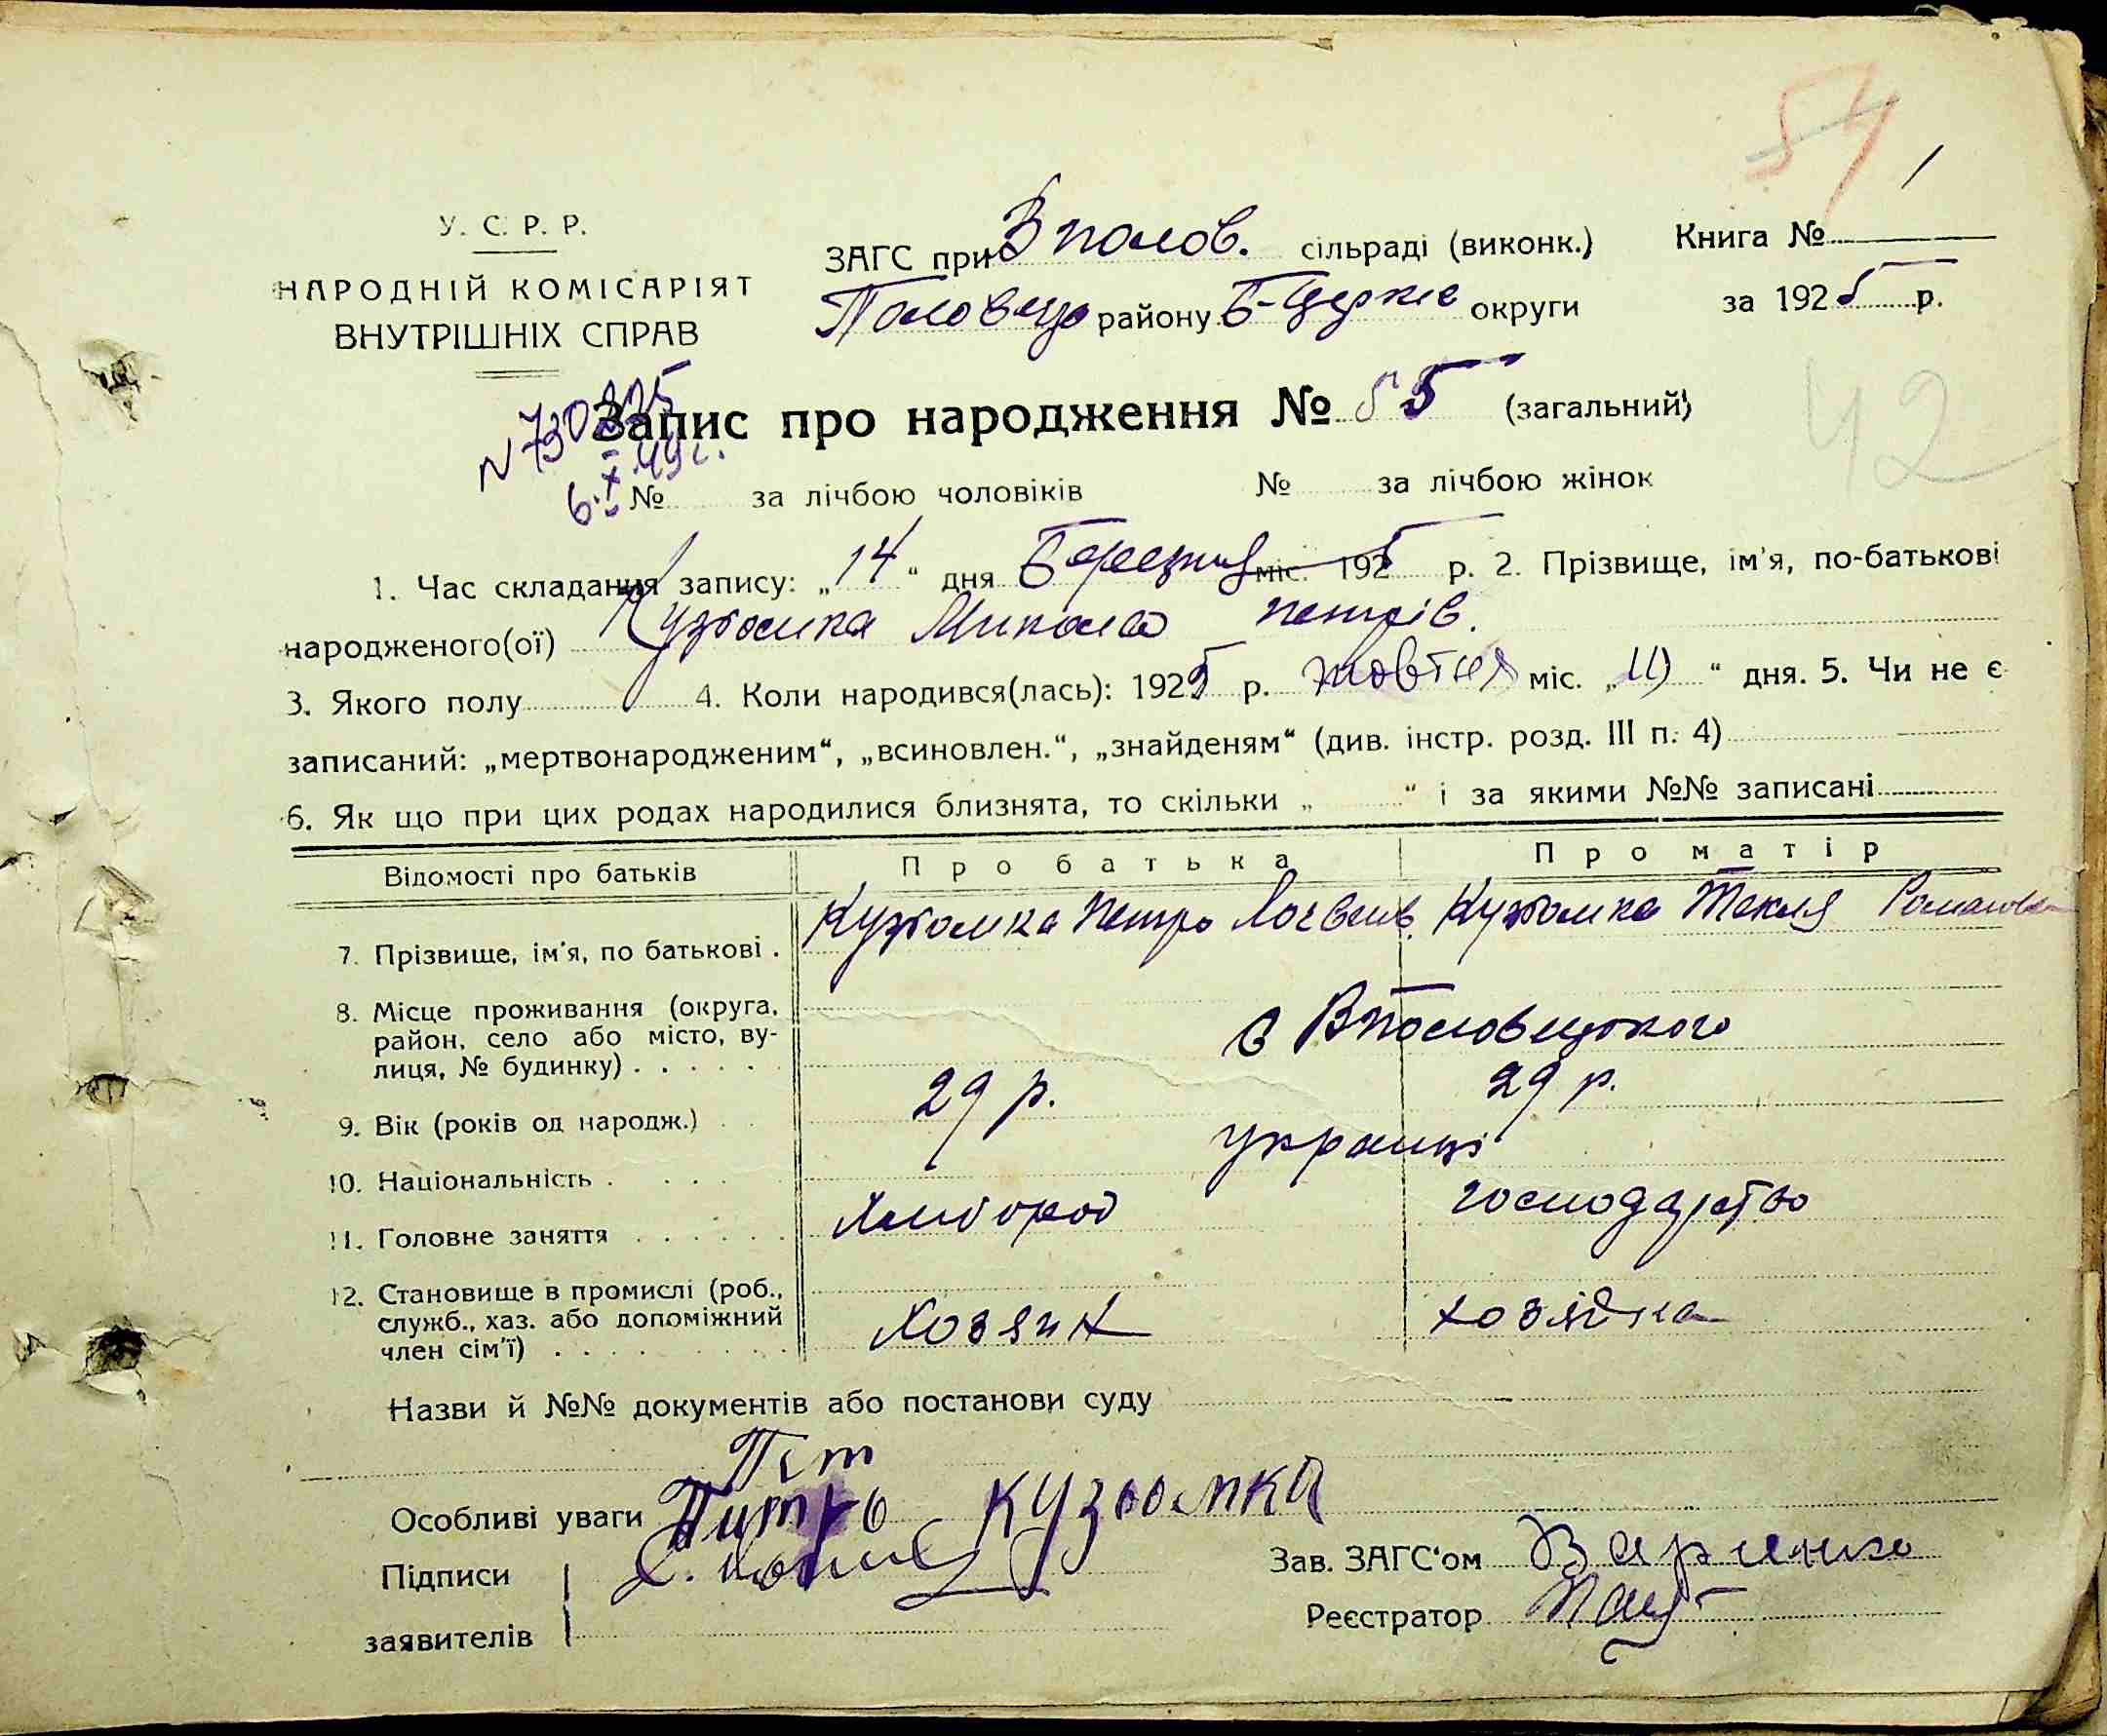 54
1
У. С. Р. Р.
НАРОДНІЙ КОМІСАРІЯТ
ВНУТРІШНІХ СПРАВ
ЗАГС при Вполов. сільраді (виконк.)
Половец району Б-Церкве округи
Книга №
за 1925 р.
N 730
6.X.49г.
Запис про народження № 55 (загальний)
42
№ за лічбою чоловіків № за лічбою жінок
1. Час складання запису: „14“ дня Березня міс. 1925 р. 2. Прізвище, ім'я, по-батькові
народженого(ої) Кузьомка Микола петрів.
3. Якого полу 4. Коли народився(лась): 1925 р. жовтня міс. „ “ дня. 5. Чи не є
записаний: „мертвонародженим“, „всиновлен.“, „знайденям“ (див. інстр. розд. III п. 4)
6. Як що при цих родах народилися близнята, то скільки „ “ і за якими №№ записані
Відомості про батьків Про батька Про матір
7. Прізвище, ім'я, по батькові . Кузьомка петро Логвинв. Кузьомка Текля Романова
8. Місце проживання (округа,
район, село або місто, ву-
лиця, № будинку) . . . . . . в Вполовецького
9. Вік (років од народж.) . . 29 р. 29 р.
10. Національність . . . . . українці
11. Головне заняття . . . . . . Хлібороб господарство
12. Становище в промислі (роб.,
служб., хаз. або допоміжний
член сім'ї) . . . . . . . . . Хозяин хозяйка
Назви й №№ документів або постанови суду
Пет
Особливі уваги Питро Кузюмка
Підписи
заявителів
Зав. ЗАГС'ом
Реєстратор